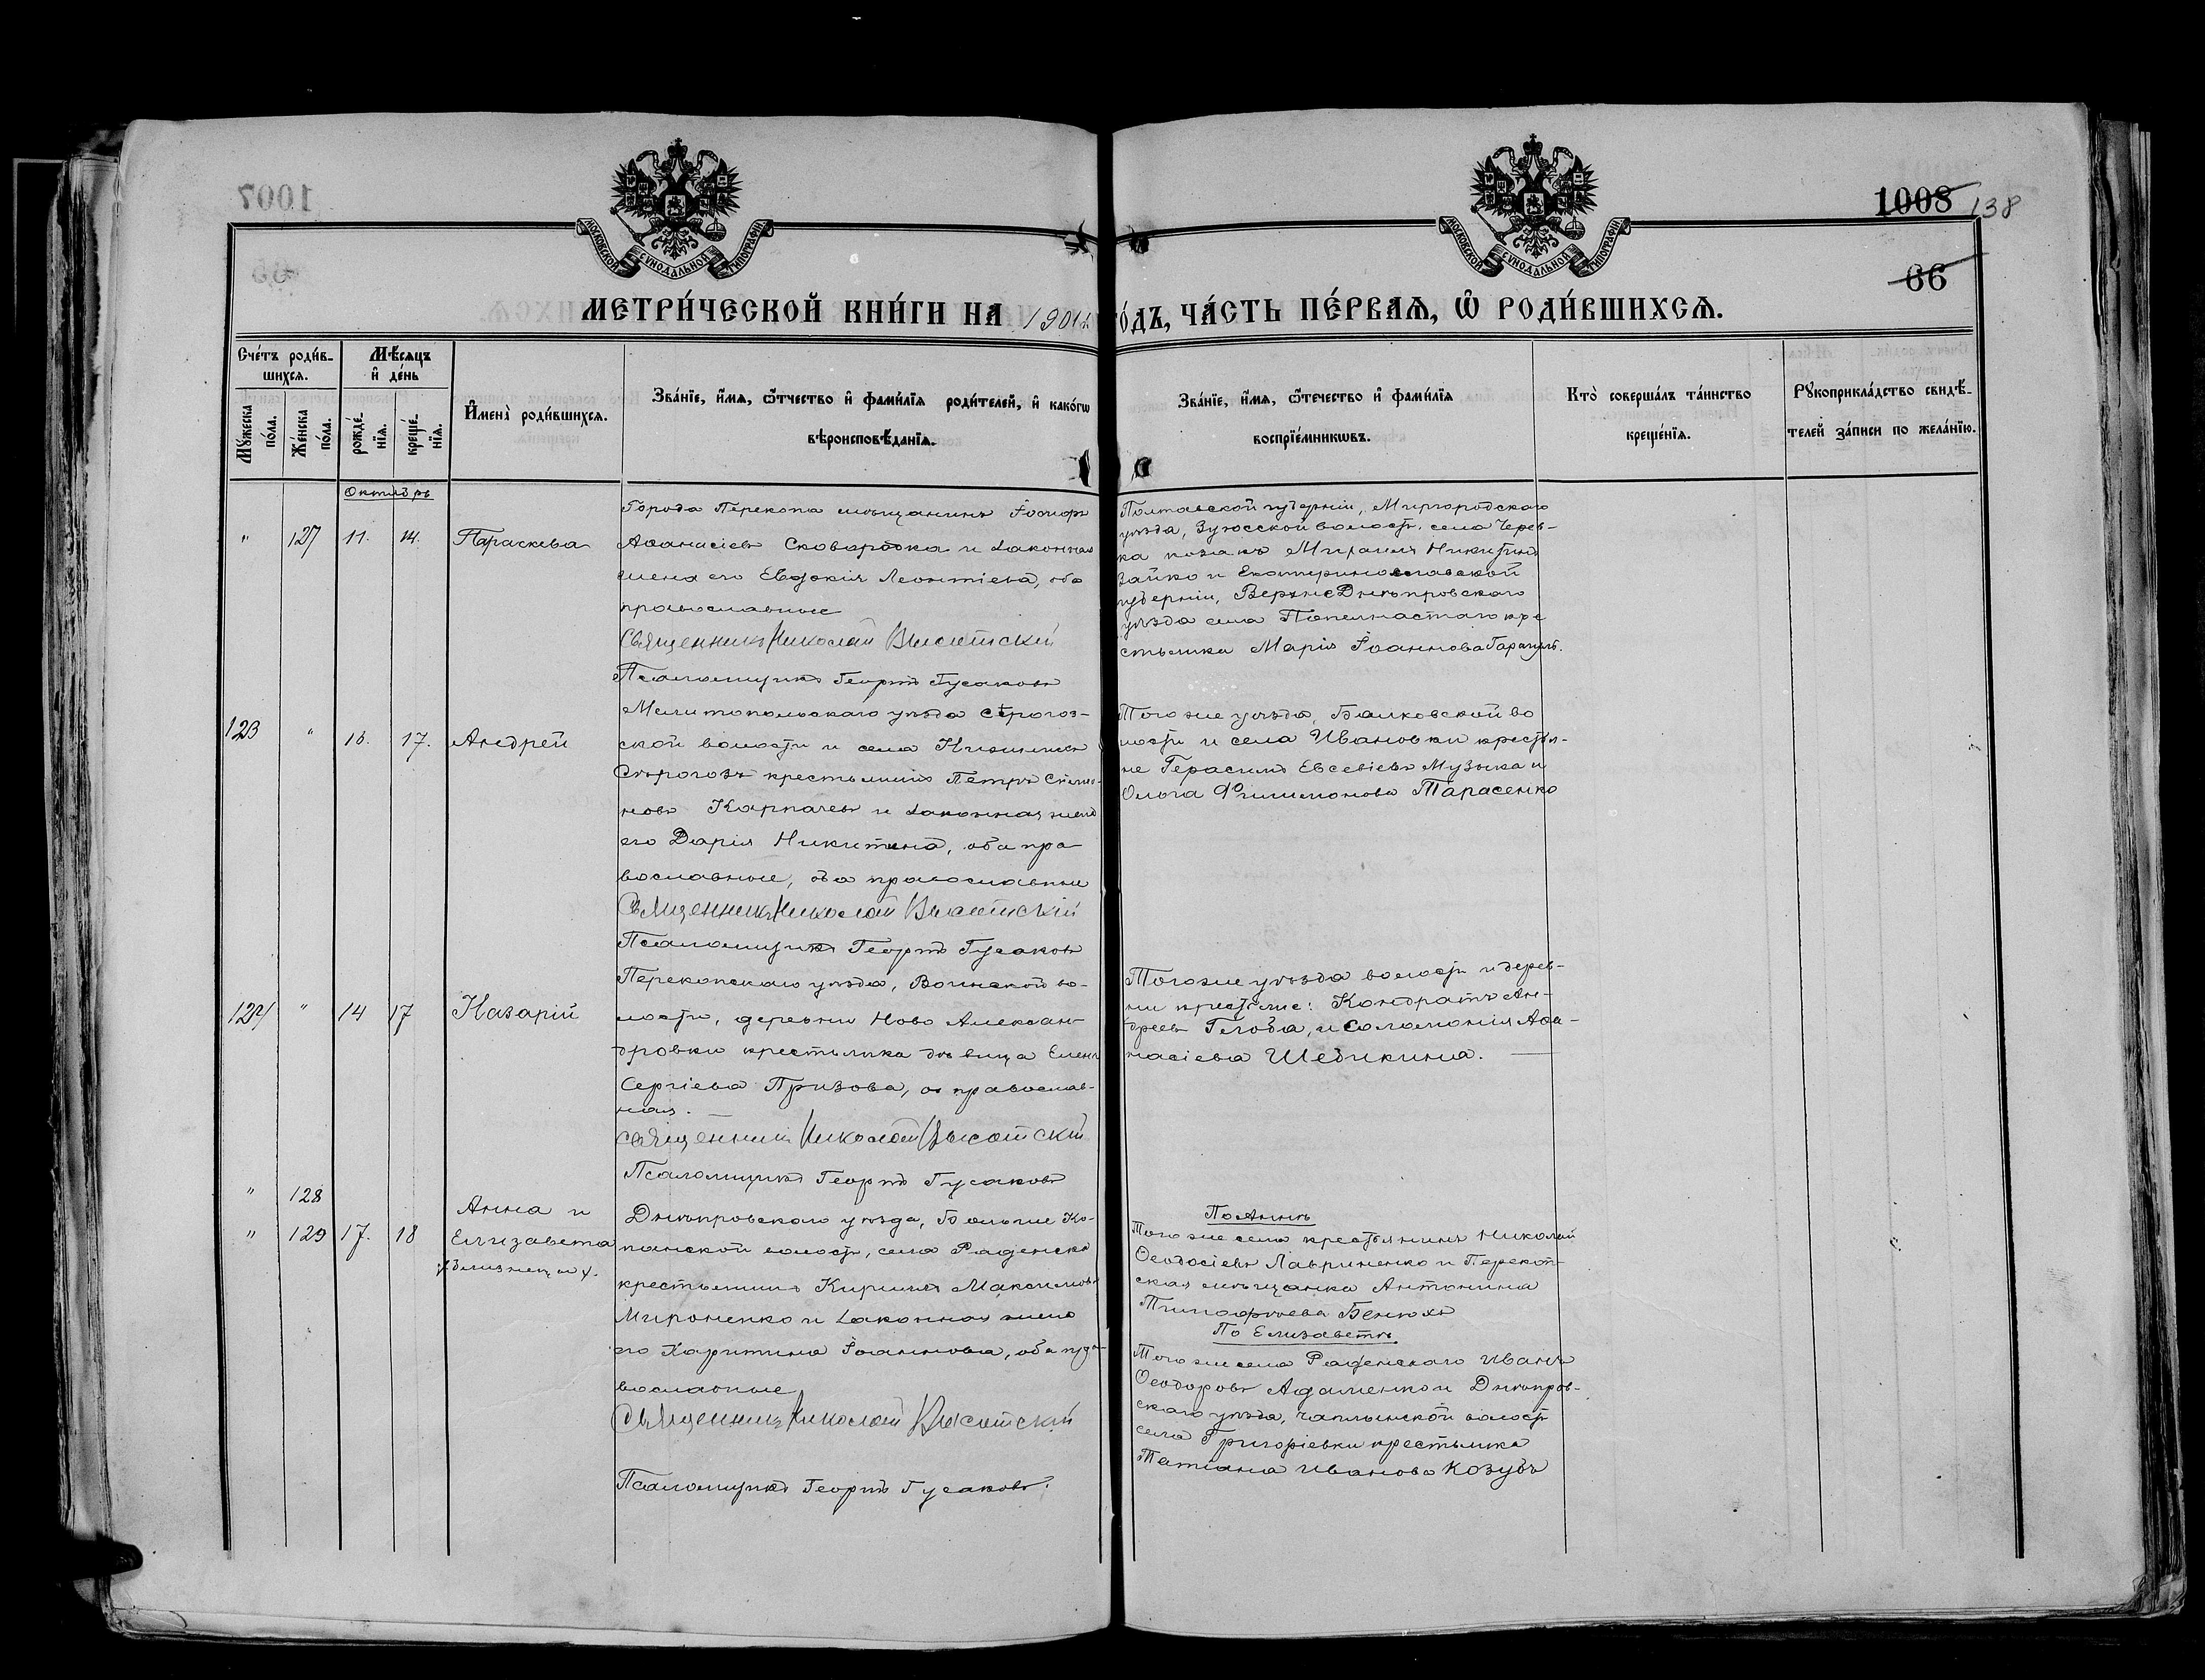 1007
1008 138
66
МОСКОВСКОЙ СУНОДАЛЬНОЙ ТИПОГРАФІИ
МОСКОВСКОЙ СУНОДАЛЬНОЙ ТИПОГРАФІИ
МЕТРИ́ЧЕСКОЙ КНИ́ГИ НА 1901 ГО́ДЪ, ЧА́СТЬ ПЕ́РВАѦ, Ѡ҆ РОДИ́ВШИХСѦ.
Сче́тъ роди́в-
шихся.
Му́жеска по́ла.
Же́нска по́ла.
Мѣ́сяцъ и҆ де́нь
рожде́-
нїя.
креще́-
нїя.
И҆мена̀ роди́вшихся.
Зва́нїе, и҆́мя, ѻ҆́тчество и҆ фами́лїя родителей, и҆ како́гѡ
вѣроисповѣ́данїя.
Зва́нїе, и҆́мя, ѻ҆те́чество и҆ фами́лїя
воспрїе́мникѡвъ.
Кто̀ соверша́лъ та́инство
креще́нїя.
Рꙋкоприкла́дство свидѣ́-
телей за́писи по жела́нїю.
Октябрь
" 127 11. 14. Параскева
Города Перекопа мѣщанинъ Іосифъ
Аѳанасіевъ Сковородка и законная
жена его Евдокія Леонтіева, оба
православные
Священникъ Николай Высотскій
Псаломщикъ Георгій Гусаковъ
Полтавской губерніи, Миргородскаго
уѣзда, волости, села Черев-
ка козакъ Михаилъ Никитинъ
Зайко и Екатеринославской
губерніи, ВерхнеДнѣпровскаго
уѣзда села Попельнастаго кре
стьянка Марія Іоаннова
123 " 16. 17. Андрей
Мелитопольскаго уѣзда Сѣрогоз-
ской волости и села Нижнихъ
Сѣрогозъ крестьянинъ Петръ Симео-
новъ Карпачевъ и законная жена
его Дарія Никитина, оба пра-
вославные, оба православные
Священникъ Николай Высотскій
Псаломщикъ Георгій Гусаковъ
Того же уѣзда, Балковской во
лости и села Ивановки крестья-
не Герасимъ Евсевіевъ Музыка и
Ольга Филимонова Тарасенко
124 " 14 17 Назарій
Перекопскаго уѣзда, Воинской во-
лости, деревни Ново Алексан-
дровки крестьянка дѣвица Елена
Сергіева Призова, православ-
ная.
Священникъ Николай Высотскій
Псаломщикъ Георгій Гусаковъ
Того же уѣзда волости и дерев-
ни крестьяне: Кондратъ Ан-
дреевъ Глоба, и Соломонія Аѳа-
насіева Шебикина.
" 128
" 129 17. 18
Анна и
Елизавета
близнецы
Днѣпровскаго уѣзда, Больше Ко-
панской волости, села Раденска
крестьянинъ Кириллъ Максимовъ
Мироненко и законная жена
его Харитина Іоаннова, оба пра-
вославные
Священникъ Николай Высотскій
Псаломщикъ Георгій Гусаковъ.
По Аннѣ
Того же села крестьянинъ Николай
Ѳеодосіевъ Лавриненко и Перекоп-
ская мѣщанка Антонина
Тимофѣева Бенюхъ
По Елизаветѣ
Того же села Раденскаго Иванъ
Ѳеодоровъ Адаменко и Днѣпров-
скаго уѣзда, Чаплынской волости
села Григоріевки крестьянка
Татіана Иванова Козубъ